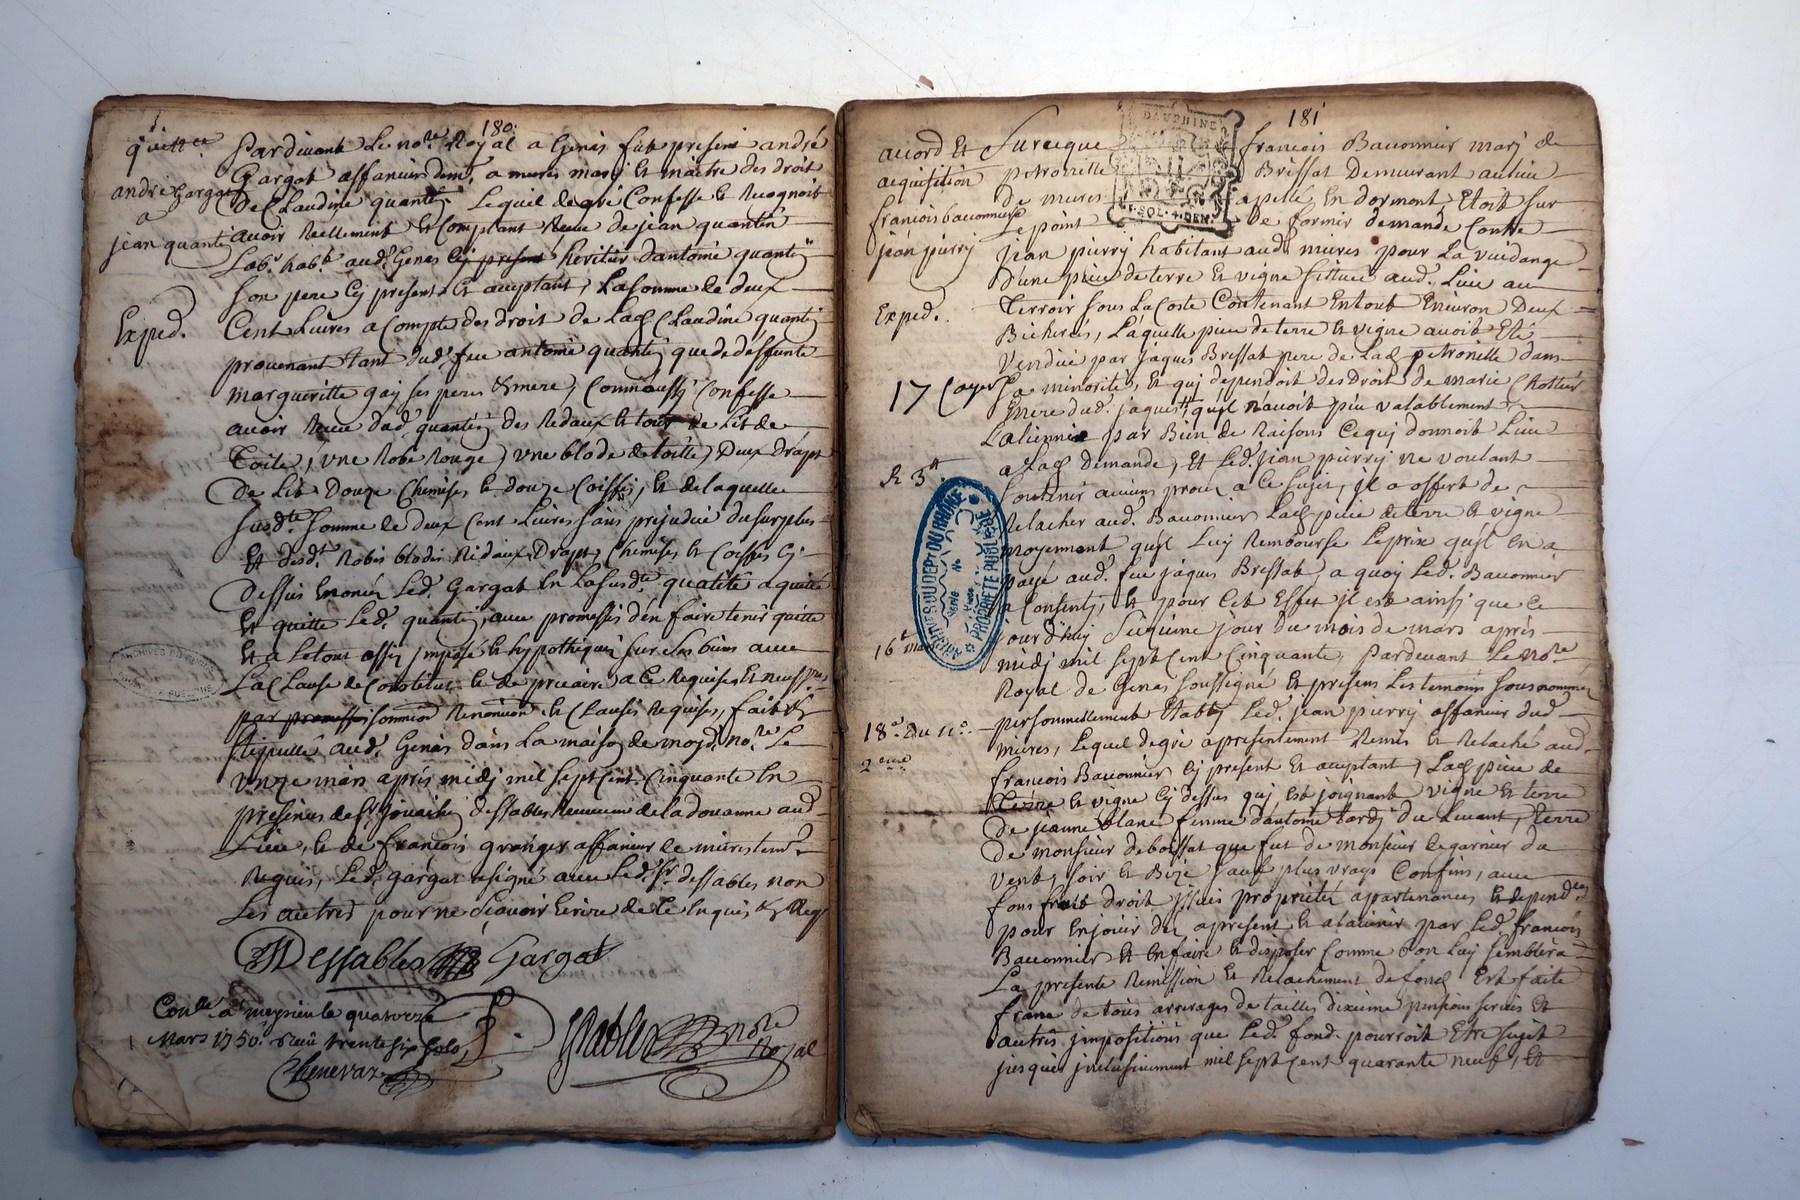 180.
quittce
andré Gargat
a
jean quanty
Exped.
Pardevant Le nore Royal a Genas fut present andré
Gargat affaneur demt a mures mary et maitre des droit
de Claudine quantin Lequel de gré Confesse et Recognoit
avoir Reellement et Comptant Receu de jean quantin
Labr habt aud. Genas cy present heritier dantoine quantin
son pere cy present et acceptant, La somme de deux
Cent Livres a Compte des droit de Lad Claudine quanty
provenant tant dud. feu antoine quanty que de deffunte
margueritte gay ses peres & mere, Comm aussy Confesse
avoir Receu dud quantin des Redaux et tour de Lit de
toite, une Robe Rouge, une blode de toitte, Deux draps
de Lit Douze Chemises et douze Coiffes, et de laquelle
susdte somme de deux Cent Livres sans prejudice du surplus
et desdt Robes blodes Ridaux, Draps, Chemises et Coiffes cy
dessus Enoncés Led. Gargat en La susdte qualité a quitté
et quitte Led. quanty, avec promesses den faire tenir quitte
et a Letour assis imposé et hypothequé sur ses biens avec
La Clause de Constitut et de precaire a ce Requises
par promission Renonciaon et Clauses Requises, fait &
stipullé aud. Genas dans La maison de moyd. nore Le
unze mars apres midy mil sept Cent Cinquante En
presences de Sr dessables Receveur de la douanne aud
Lieu, et de francois granger affaneur de mures tem.
Requis, Led. gargat a signé avec Led. Sr dessables non
Les autres pour ne scavoir Ecrire de ce Enquis & Reqs
Dessables Gargat
Conlle a meyzieu le quatorze
Mars 1750. Receu trente six sols
Chenevaz
nore
Royal
181
accord et
acquisition
francois bauonnier
jean pierry
Exped.
17 Cayer
R 3tt
16e mars
18e Du
2eme
DAUPHINE
SOL DEN
ARCHIVES DU DEPT DU RHONE
PROPRIETE PUBLIQUE
ARCHIVES DU RHONE
Sur ce que francois Bauonnier mary de
petronille Bressat Demeurant au lieu
de mures apellé En dormont Etoit sur
Le point de former demande Contre
Jean pierry habitant aud mures pour La vuidange
D'une piece de terre et vigne scittuée aud. Lieu au
Terroir sous La Coste Contenant En tout Environ Deux
Bicherées, Laquelle piece de terre et vigne avoit Eté
Vendüe par jaques Bressat pere de Lad petronille dans
sa minorité, et qui dependoit des Droit de marie Chollier
mere dud. jaques qu'il n'avoit peu valablement
L'aliener par Bien de Raisons Ce qui donnoit Lieu
a Lad Demande, Et Led. Jean pierry ne voulant
soutenir aucuns procez a ce sujet, il a offert de
Relacher aud. Bauonnier Lad piece de terre et vigne
moyennant qu'il Luy Rembourse Le prix qu'il en a
payé aud. feu jaques Bressat, a quoy Led. Bauonnier
a Consenty, Et pour Cet Effet il est ainsy que ce
jourd'huy seizieme jour du mois de mars apres
midy mil sept Cent Cinquante, Pardevant Le nore
Royal de Genas soussigné et presens Les temoins sous nommés
personnellement Etably Led. jean pierry affaneur dud
mures, Lequel de gré a presentement Remis et Relaché aud
francois Bauonnier cy present et acceptant, Lad piece de
terre et vigne cy dessus qui est joignant vigne et terre
De jeanne blanc femme d'antoine tardy du Levant, terre
De monsieur de boissat que fut de monsieur Legarnier du
Vent, soir et Bize sauf plus vrays Confins, avec
fons fruit droit issues proprieté appartenances et dependces
pour En jouir dez apresent et alavenir par Led. francois
Bauonnier et En faire et disposer Comme bon Luy semblera
La presente Remission et Relachement de fond Est faite
franc de tous arrerages de tailles dixieme, pensions servies et
autres impositions que Led. fond pourroit Etre sujet
jusques inclusivement mil sept Cent quarante neuf, Et